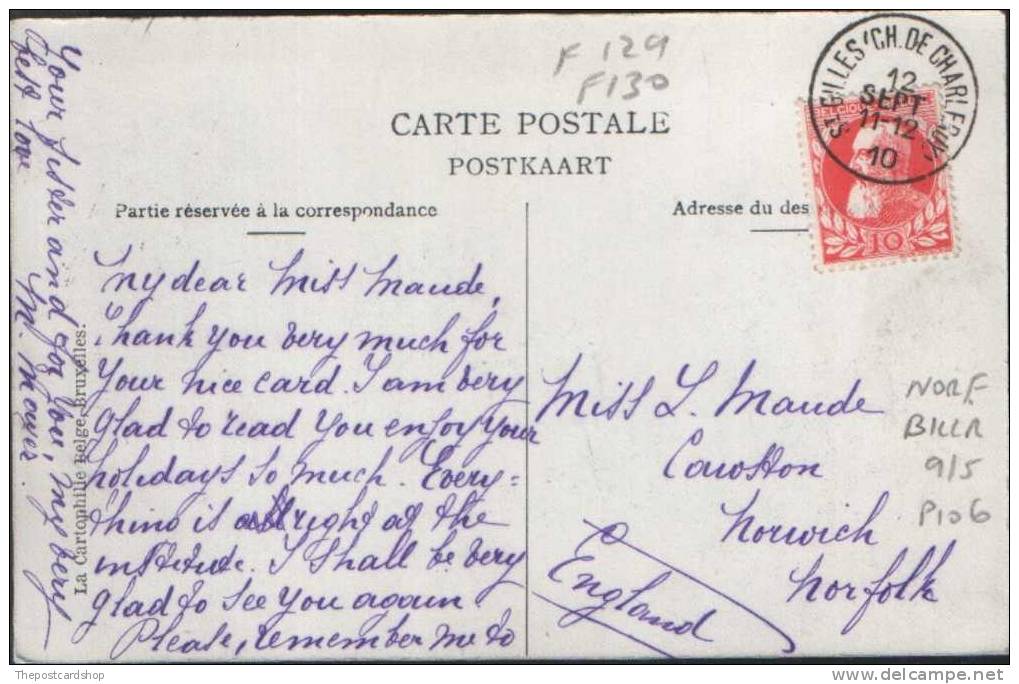 F 129
F130
CARTE POSTALE
POSTKAART
ST GILLES (CH. DE CHARLEROI)
12
SEPT
11-12
10
BELGIQUE
10
Partie réservée à la correspondance
Adresse du des
My dear Miss Maude,
Thank you very much for
your nice card. I am very
glad to read you enjoy your
holidays so much. Every=
thing is allright at the
institute. I shall be very
glad to see you again.
Please, remember me to
your sister and for you, my very
best love
M.
Miss L. Maude
Cawston
Norwich
Norfolk
England
NORF
BKLR
9/5
P106
La Cartophilie Belge, Bruxelles.
Thepostcardshop
delcampe.net